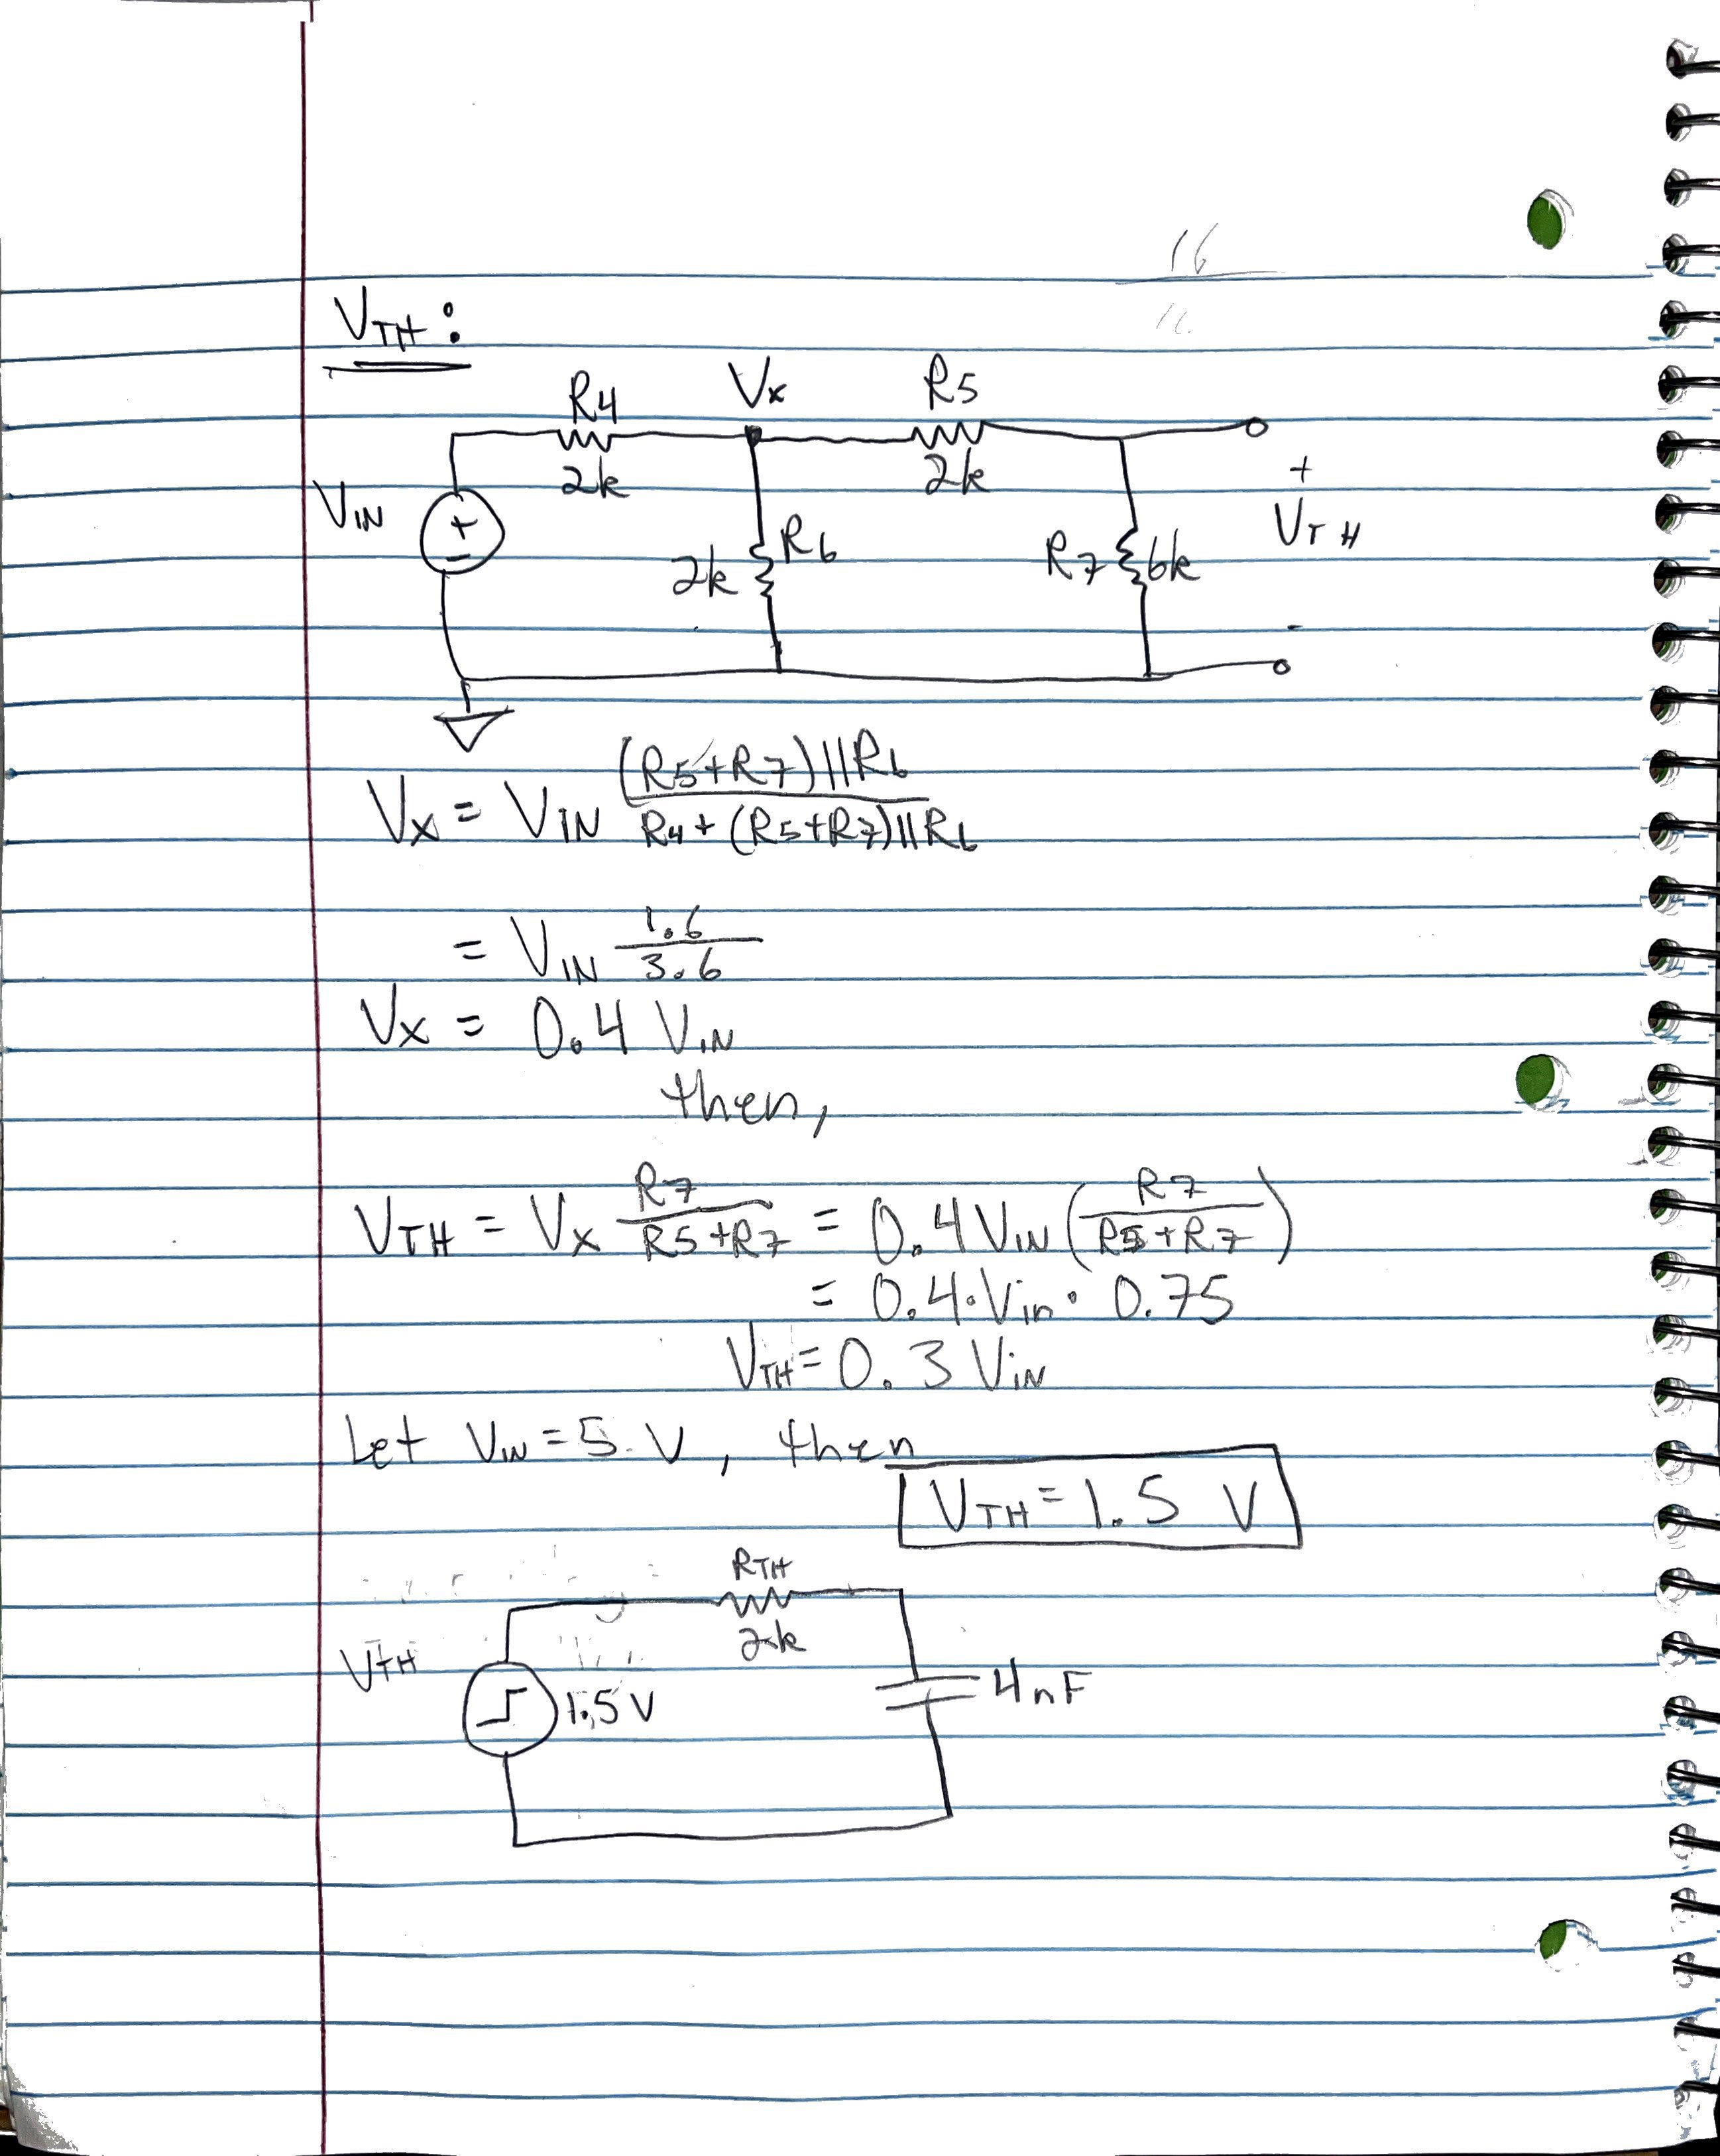 16
VTH:
R4 Vx R5
2k 2k
VIN + - R6 2k R7 6k + VTH -
Vx = VIN (R5+R7)||R6 / R4+(R5+R7)||R6
= VIN 1.6/3.6
Vx = 0.4 VIN
then,
VTH = Vx R7/R5+R7 = 0.4 VIN (R7/R5+R7)
= 0.4·Vin·0.75
VTH = 0.3 Vin
Let VIN = 5 V, then
VTH = 1.5 V
RTH
2k
VTH 1.5 V 4nF